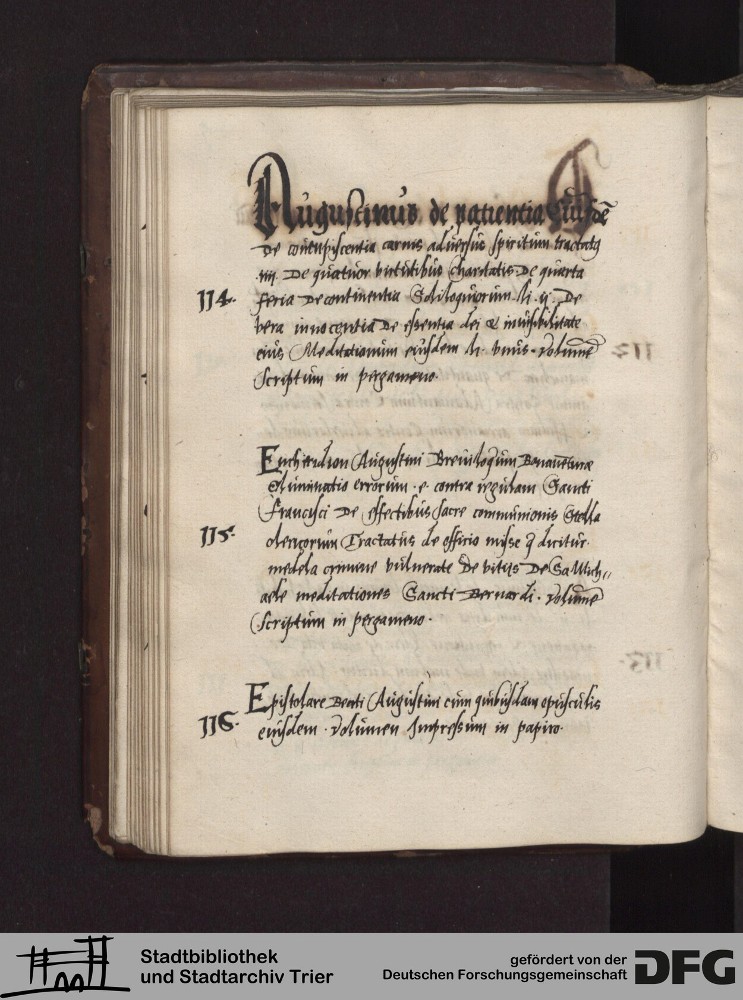 Augustinus de patientia Eiusdē
De concupiscentia carnis adversus spiritum tractatꝯ
.iiij. De quatuor virtutibus charitatis De quarta
114. feria De continentia Soliloquiorum li. ij. De
vera innocentia De essentia dei & invisibilitate
eius Meditationum eiusdem li. unus. Volumē
Scriptum in pergameno.
Encheridion Augustini Breviloquium Bonaventure
Eliminatio errorum .e. contra regulam Sancti
Francisci De effectibus sacre communionis Stella
115. clericorum Tractatus de officio misse q̄ dicitur
medela anime vulnerate De vitijs De Sa. Mich⸗
aele meditationes Sancti Bernardi. Volumē
Scriptum in pergameno.
Epistolare Beati Augustini cum quibusdam opusculis
116. eiusdem. Volumen Impressum in papiro.
Stadtbibliothek
und Stadtarchiv Trier
gefördert von der
Deutschen Forschungsgemeinschaft
DFG